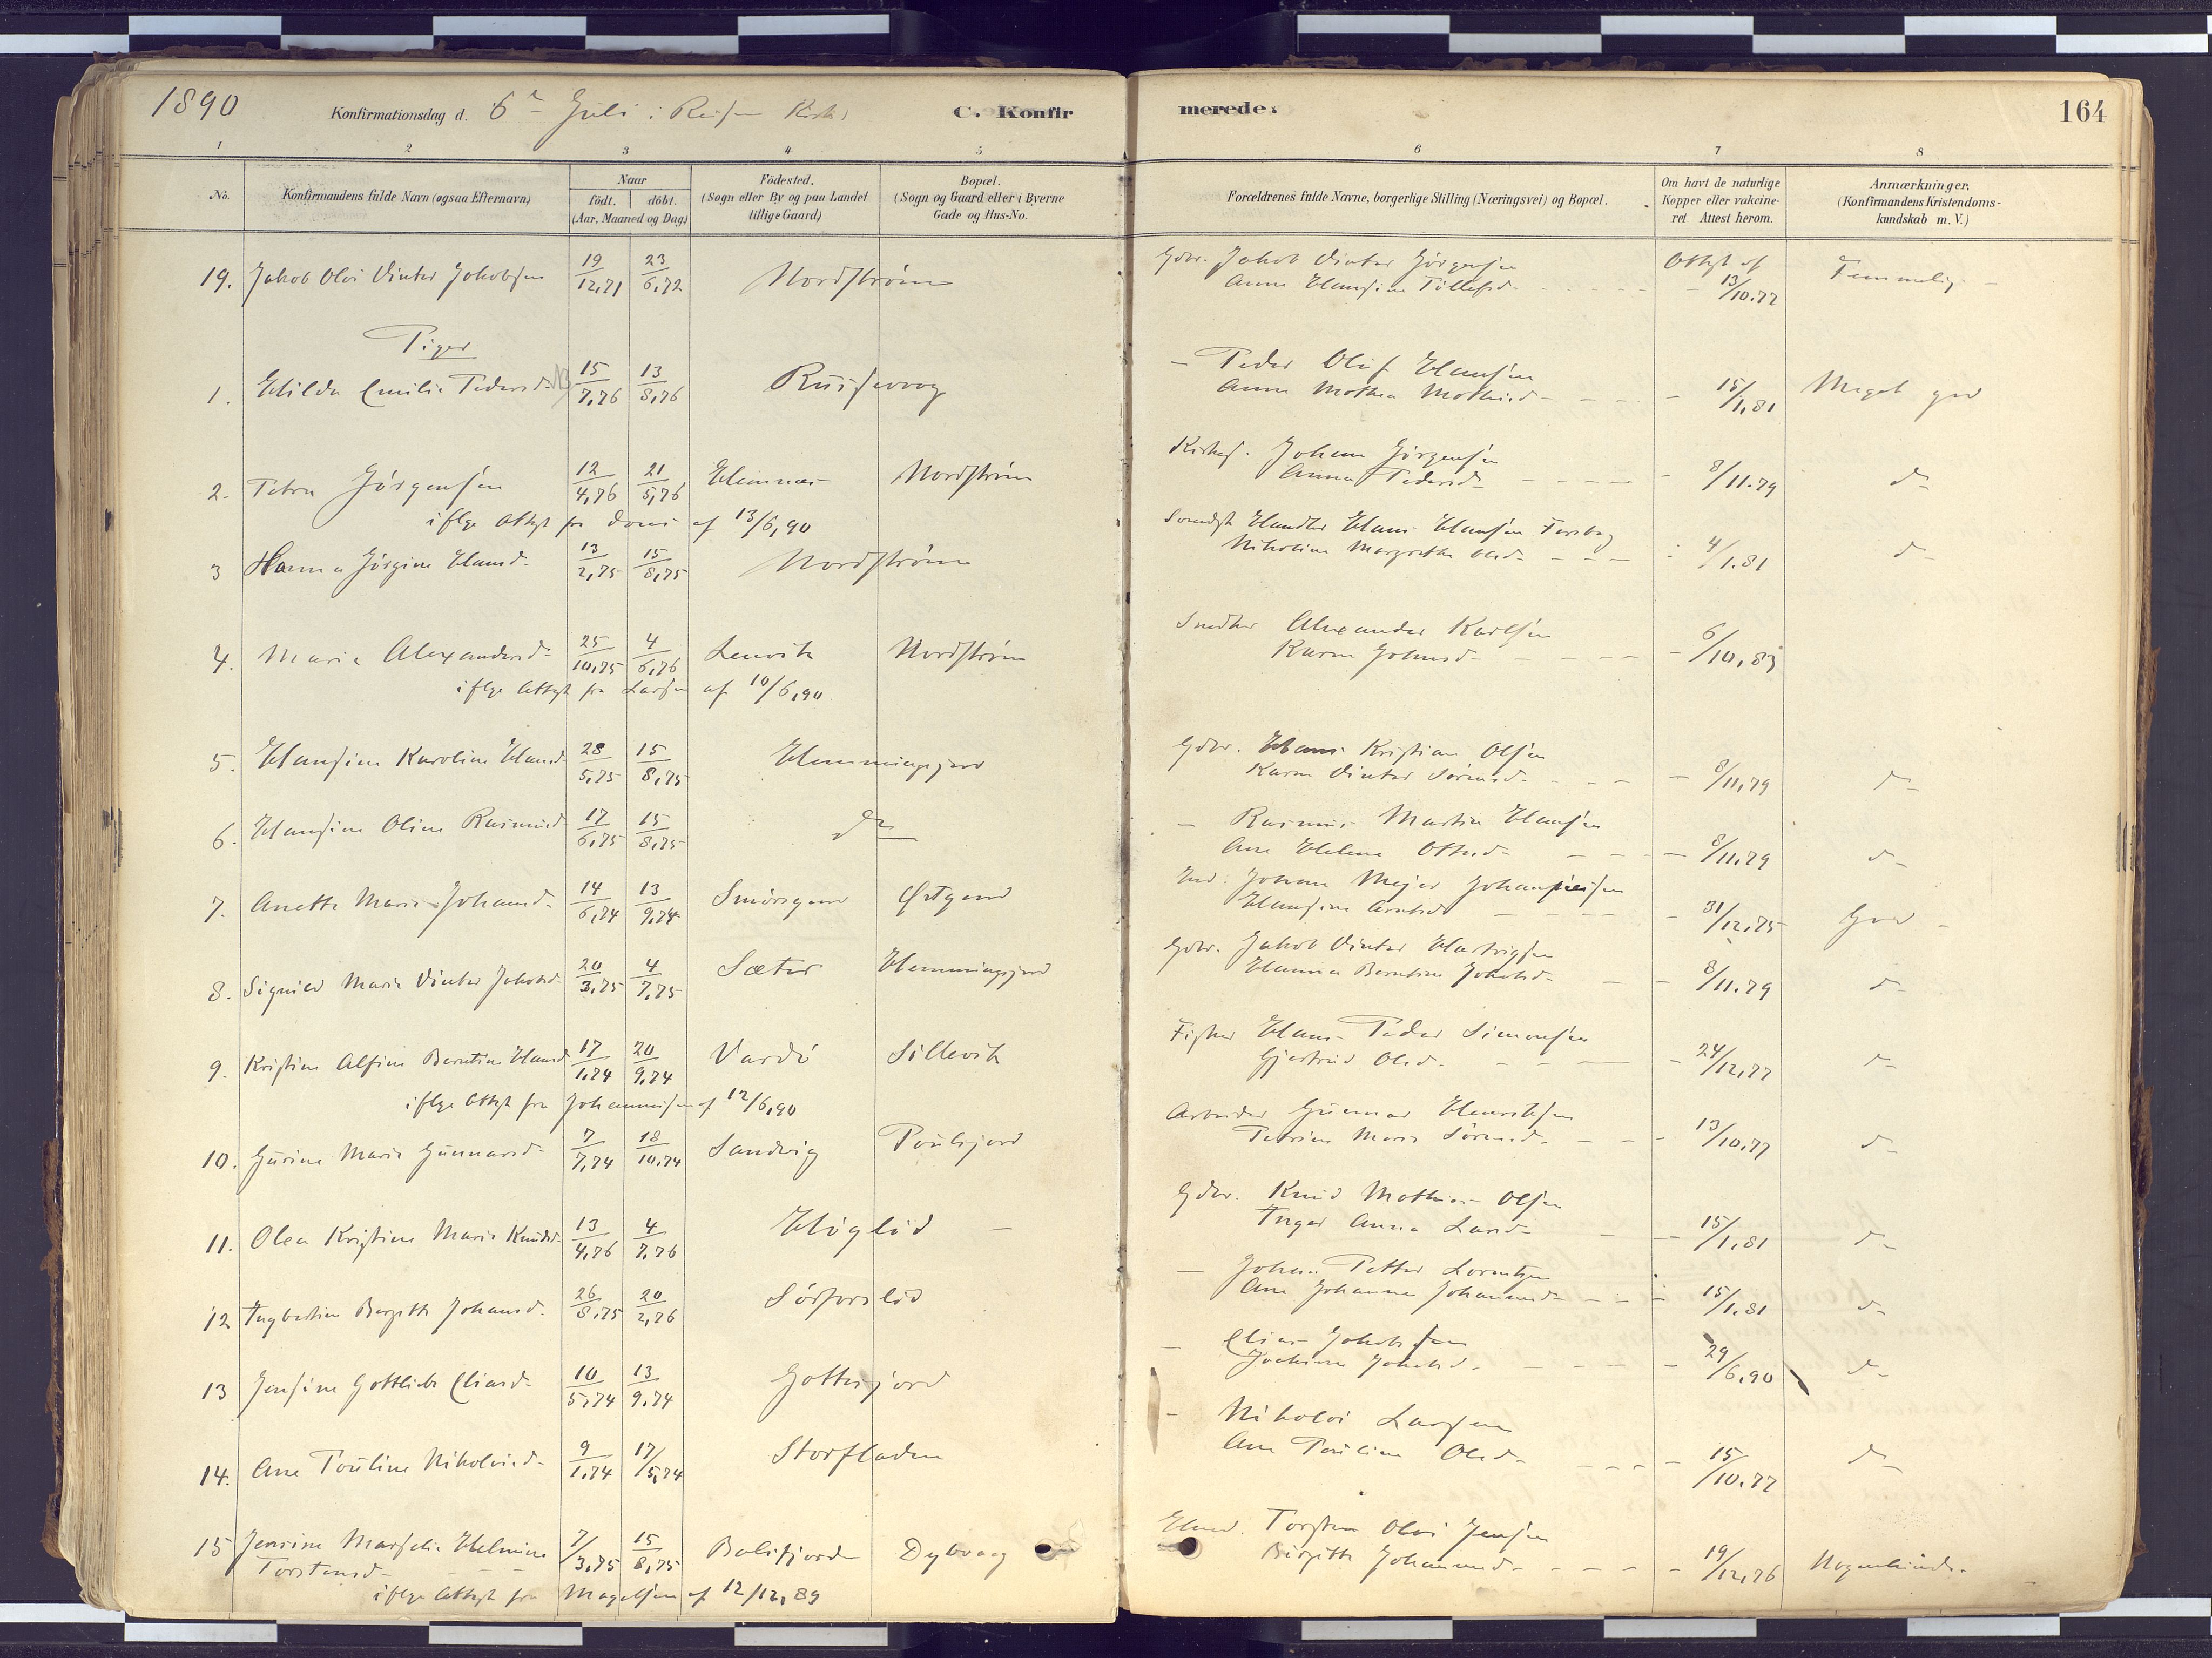 1890 Konfirmationsdag d. 6te Juli i Reisen Kirke C. Konfirmerede. 164
1 2 3 4 5 6 7 8
No. Konfirmandens fulde Navn (ogsaa Efternavn) Naar født. døbt. (Aar, Maaned og Dag) Födested. (Sogn eller By og paa Landet tillige Gaard) Bopæl. (Sogn og Gaard eller i Byerne Gade og Hus-No. Forældrenes fulde Navne, borgerlige Stilling (Næringsvei) og Bopæl. Om havt de naturlige Kopper eller vakcineret. Attest herom. Anmærkninger. (Konfirmandens Kristendomskundskab m. V.)
19. Jakob Olai Vinter Jakobsen 19/12,71 23/6,72 Nordstrøm Gdbr. Jakob Vinter Jørgensen Attest af 13/10.77 Temmelig
Anne Hansine Tollefsd.
Piger
1. Hilda Emilie Pedersd. 15/7,76 13/8,76 – Peder Olif Hansen 15/1,81 Meget god
Anna Mothea Mathisd.
2. Petra Jørgensen 12/4,76 21/5,76 Hemnes Nordstrøm Johan Jørgensen 8/11.79 do
Anna Pedersd.
iflge Attest fra af 13/6,90
3 Hanna Jørgine Hansd. 13/2,75 15/8,75 Nordstrøm Hans Hansen 4/1.81 do
Nikoline Margrethe Olsd.
4. Marie Alexandersd. 25/10,75 4/6,76 Lenvik Nordstrøm Alexander Karlsen 6/10,83
Karen Johnsd.
iflge Attest fra Larsen af 10/6,90
5. Hansine Karoline Hansd. 28/5,75 15/8,75 Hemmingsjord Gdbr. Hans Kristian Olsen 8/11,79 do
Karen Vinter Sørensd.
6. Hansine Oline Rasmusd. 17/6,75 15/8,75 do – Rasmus Martin Hansen 8/11.79 do
Ane Helene Ottesd.
7. Anette Marie Johansd. 14/6,74 13/9,74 Smørsgaard Johan Mejer Johannesen 31/12,75 God
Hansine Arntsd.
8. Signild Marie Vinter Jakobsd. 20/3,75 4/7,75 Sæter Hemmingsjord Gdbr. Jakob Vinter Hartvigsen 8/11.79 do
Hanna Berntine Jakobsd.
9. Kristine Alfine Berntine Hansd. 17/1,74 20/9,74 Vardø Sillevik Fisker Hans Peder Simonsen 24/12,77 do
Gjertrud Olsd.
iflge Attest fra Johannesen af 12/6,90
10. Gurine Marie Gunnarsd. 7/7,74 18/10,74 Sandvig Poulsjord Arbeider Gunnar Henriksen 13/10,77 do
Petrine Marie Sørensd.
11. Olea Kristine Marie Knudsd. 13/4,76 4/7,76 Høglid Gdbr. Knud Mathias Olsen 15/1,81 do
Inger Anna Larsd.
12 Ingbertine Bergitte Johansd. 26/8,75 20/2,76 Sørforslid – Johan Petter Lorentsen 15/1.81 do
Ane Johanna Johannesd.
13 Jensine Gottliebe Eliasd. 10/5,74 13/9,74 Gottesjord – Elias Jakobsen 29/6,90 do
Jochime Jakobsd.
14. Ane Pouline Nikolaisd. 9/1,74 17/5,74 Storfladen – Nikolai Larsen 15/10.77 do
Ane Pouline Olsd.
15 Jensine Marselie Helmine 7/3,75 15/8,75 Balsfjorden Dybvaag Torsten Olai Jensen 19/12,76 Nogenlunde
Torstensd. Birgitte Johannesd.
iflge Attest fra Magelsen af 12/12,89